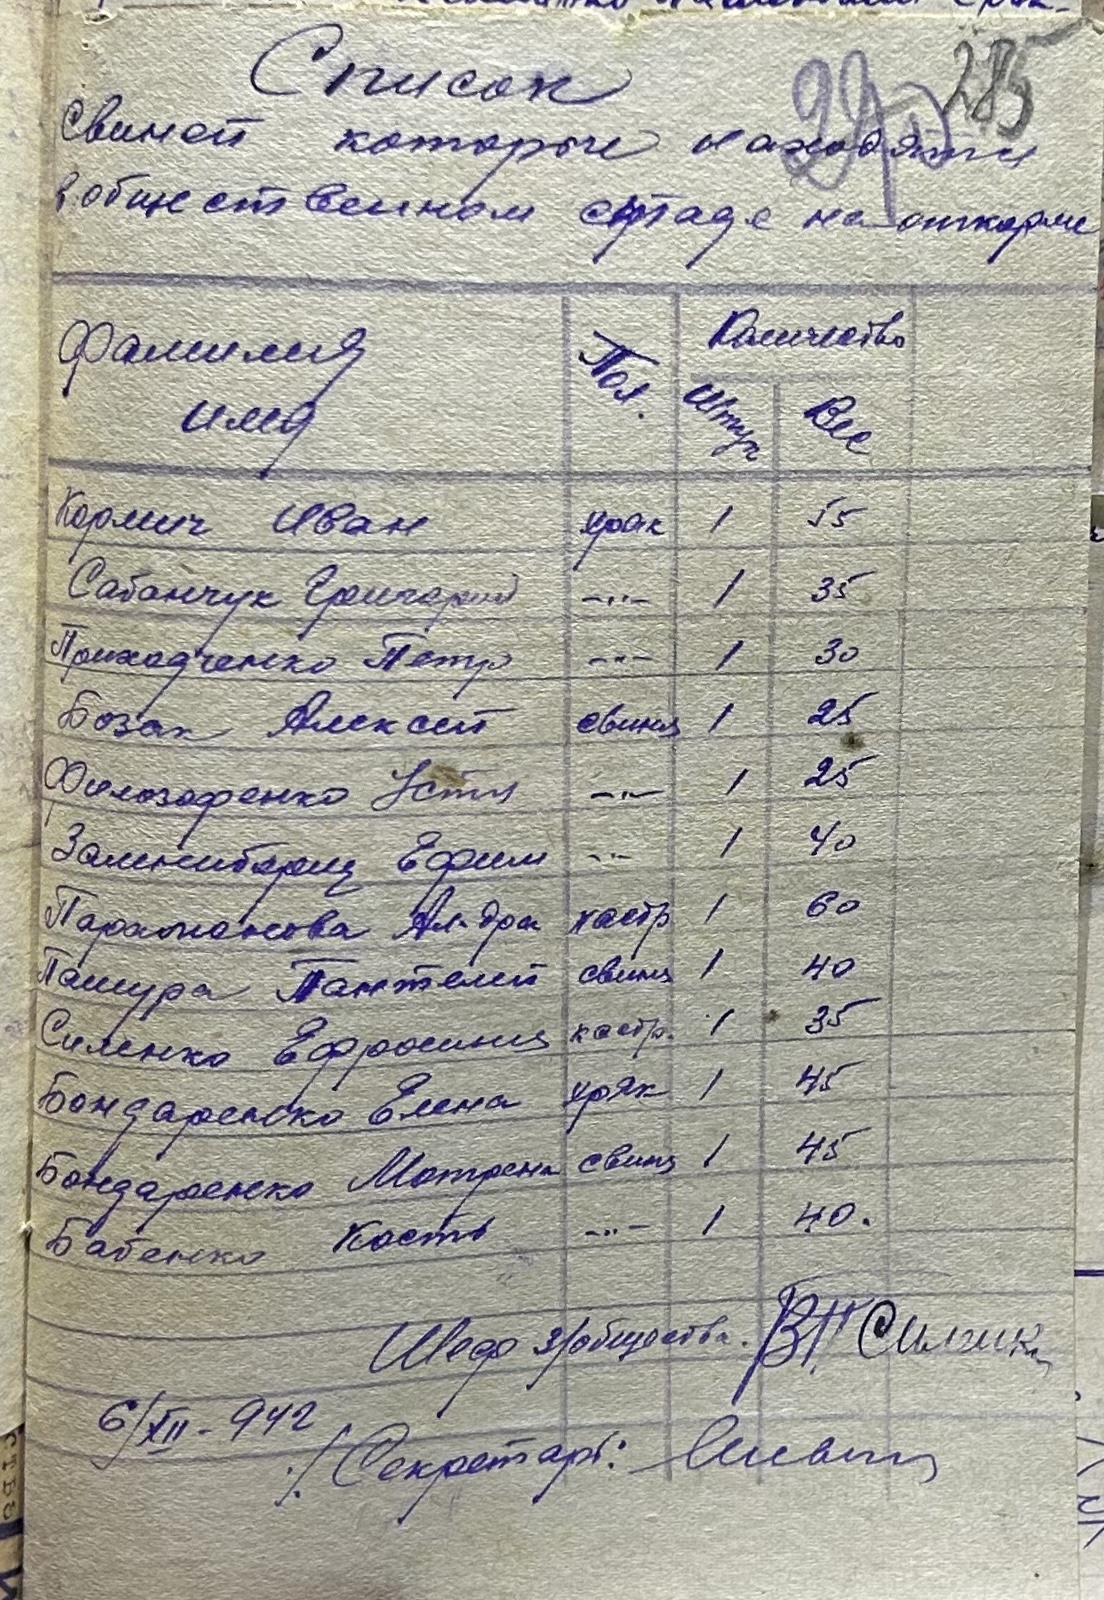 Список
285
свиней которые находятся
в общественном стаде на откорме
Фамилия
имя
Пол.
Количество
Штук
Вес
Кормич Иван хряк 1 55
Сабанчук Григорий -"- 1 35
Приходченко Петр -"- 1 30
Бозак Алексей свиня 1 25
Филозофенко Устя -"- 1 25
Ефим -"- 1 40
Парамонова Ал-дра кастр 1 60
Пашура Пантелей свиня 1 40
Силенко Ефросиния кастр. 1 35
Бондаренко Елена хряк 1 45
Бондаренко Мотрена свиня 1 45
Бабенко Кость -"- 1 40.
Шеф з/общества.
6/XII-942
/Секретарь: